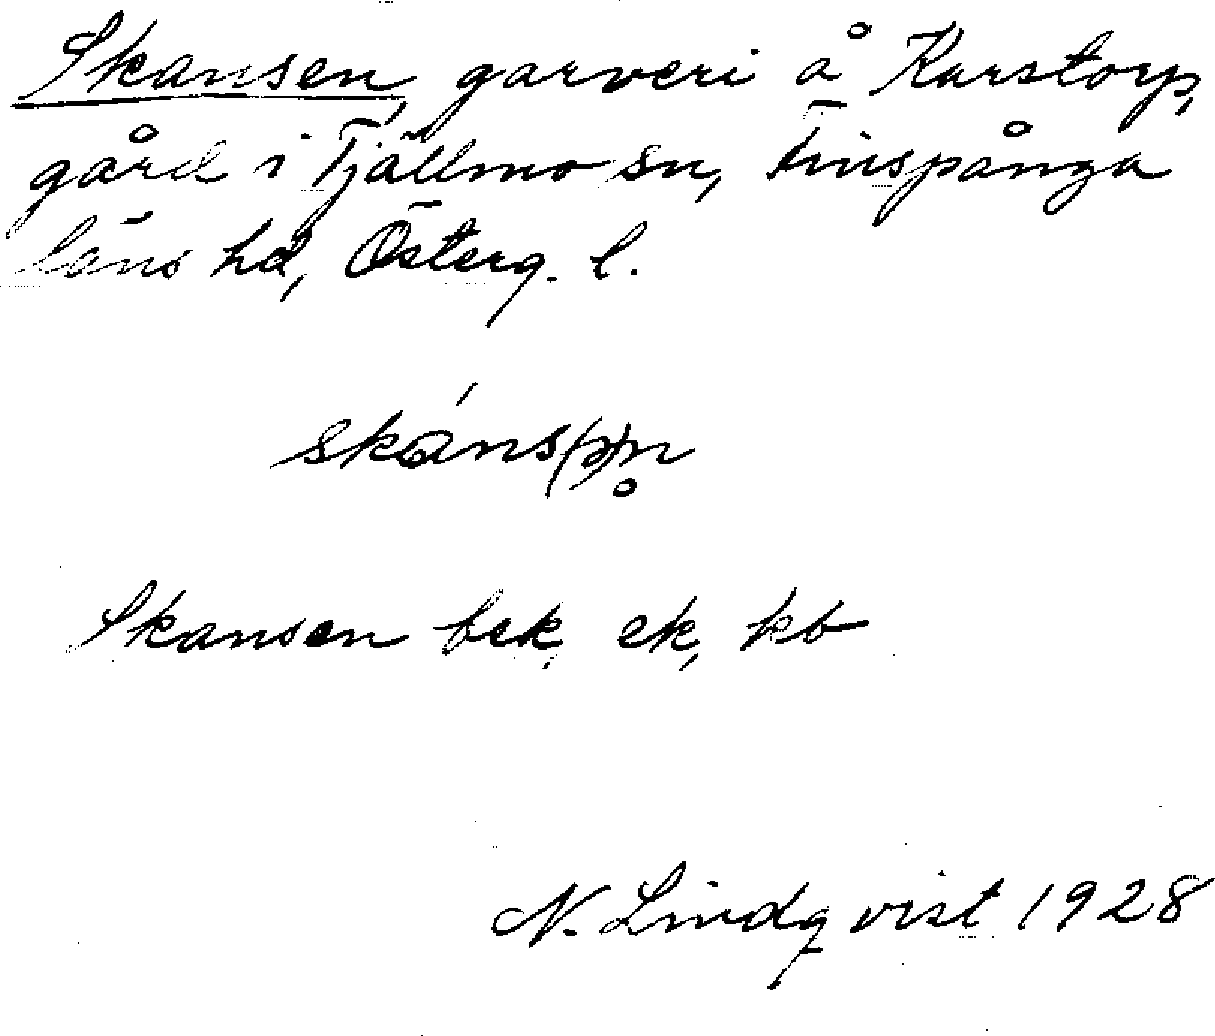 Skansen, garveri å Karstorp,
gård i Tjällmo sn, Finspånga
läns hd, Österg. l.
skáns(ə)n̥
Skansen bek, ek, kb
N. Lindqvist 1928